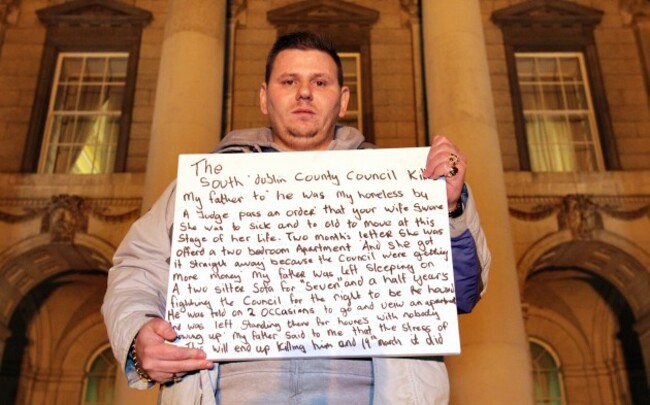 The
South 'dublin County Council
My father to' he was my homeless by
A Judge pass an order that your wife Swore
She was to sick and to old to move at this
Stage of her life. Two months letter she was
offerd a two bedroom Apartment And she got
it straight away because the Council were getting
More money. My father was left Sleeping on
A two sitter Sofa for "Seven" and a half years
fighting the Council for the right to be Re housed
He was told on 2 occasions to go and veiw an apartment
was left Standing there for houres with nobody
My father Said to me that the stress of
will end up Killing him and 19th march it did